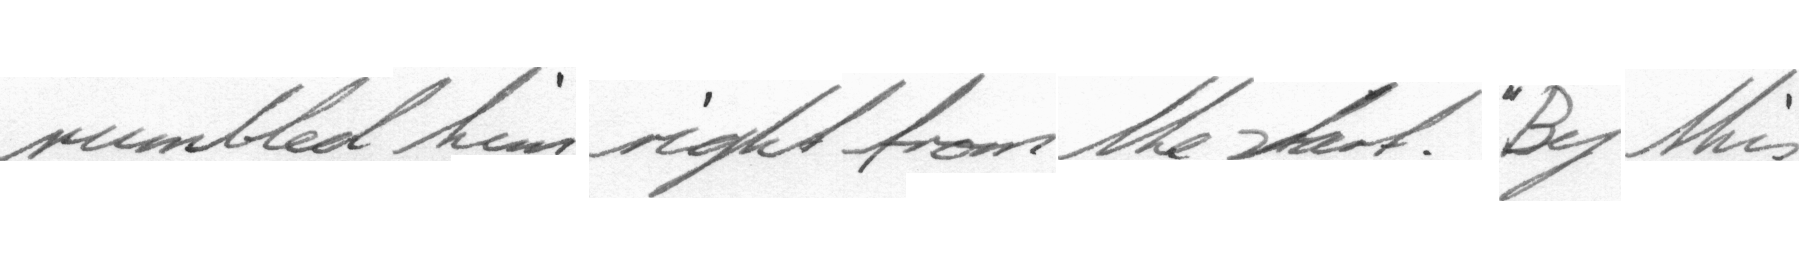 rumbled him right from the start. "By this